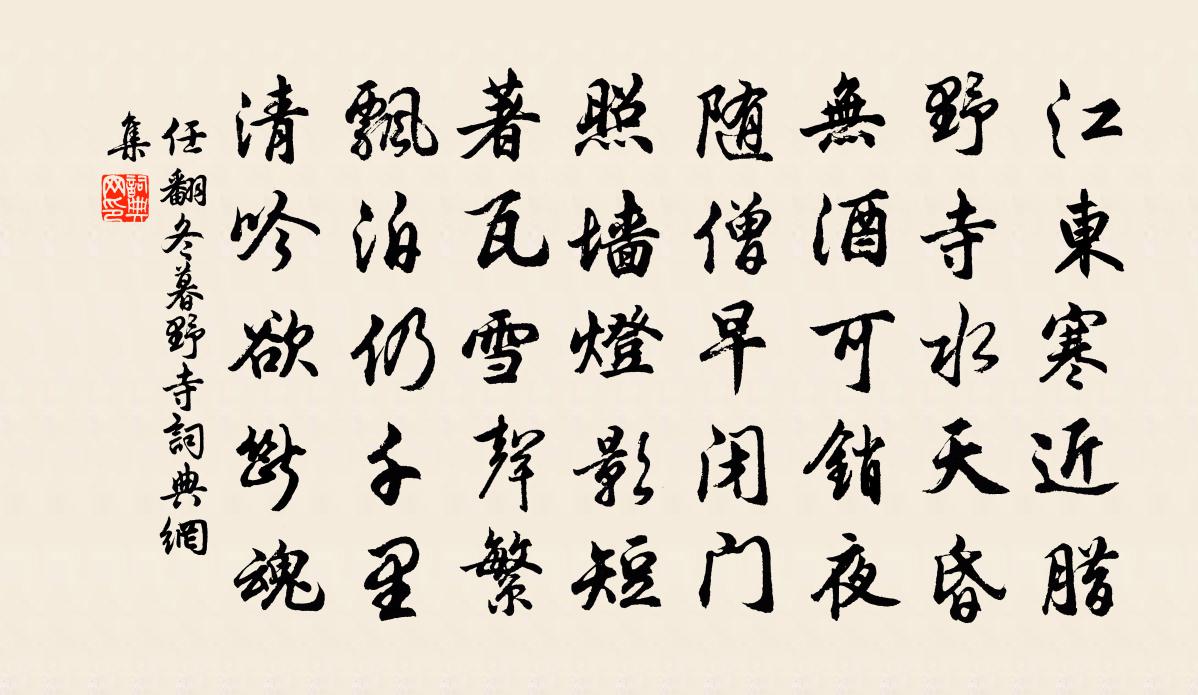 江東寒近臘
野寺水天昏
無酒可銷夜
随僧早闭门
照墙燈影短
著瓦雪聲繁
飄泊仍千里
清吟欲斷魂
任翻冬暮野寺詞典網
集
詞典
网印